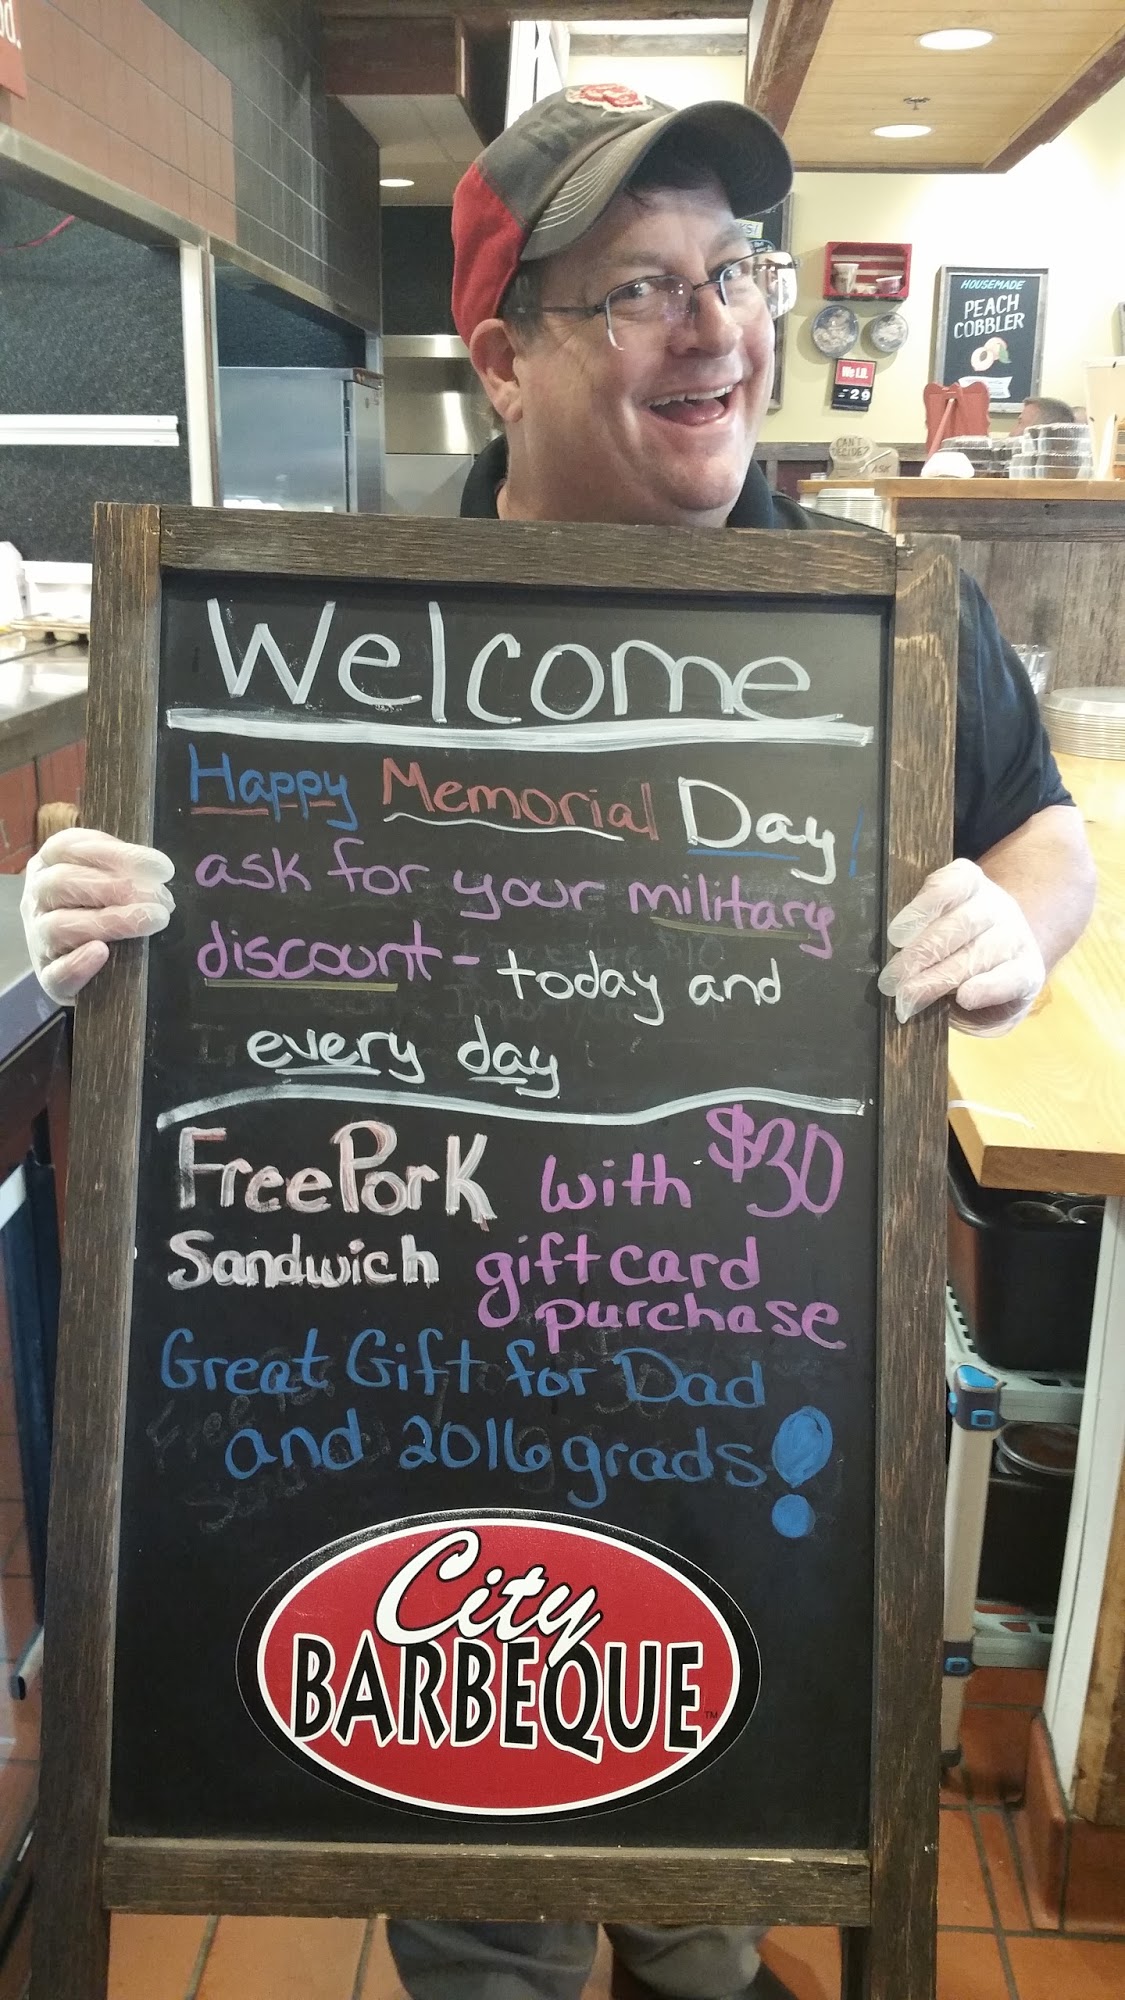 od.
HOUSEMADE
PEACH
COBBLER
29
CAN'T
DECIDE?
ASK
Welcome
Happy Memorial Day!
ask for your military
discount - today and
every day
Free Pork with $30
Sandwich gift card
purchase
Great Gift for Dad
and 2016 grads!
City
BARBEQUE
TM